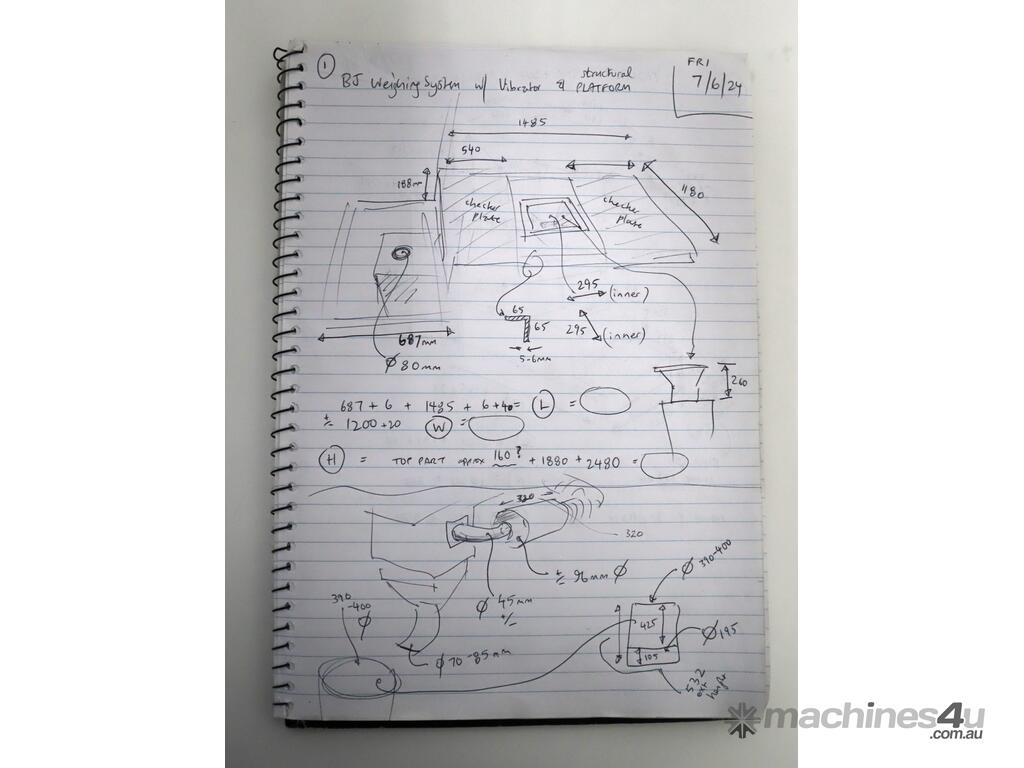 1
BJ Weighing System w/ Vibrator & structural PLATFORM
FRI
7/6/24
1485
540
188mm
1180
checker plate
checker plate
295 (inner)
65
65
295 (inner)
5-6mm
687mm
Ø 80mm
260
687 + 6 + 1485 + 6 + 40 = L =
+/- 1200 + 20 W =
H = TOP PART approx 160? + 1880 + 2480 =
320
320
+/- 96mm Ø
Ø 45mm +/-
Ø 390-400
390-400 Ø
425
Ø 195
105
Ø 70-85mm
532 ext height
machines4u
.com.au